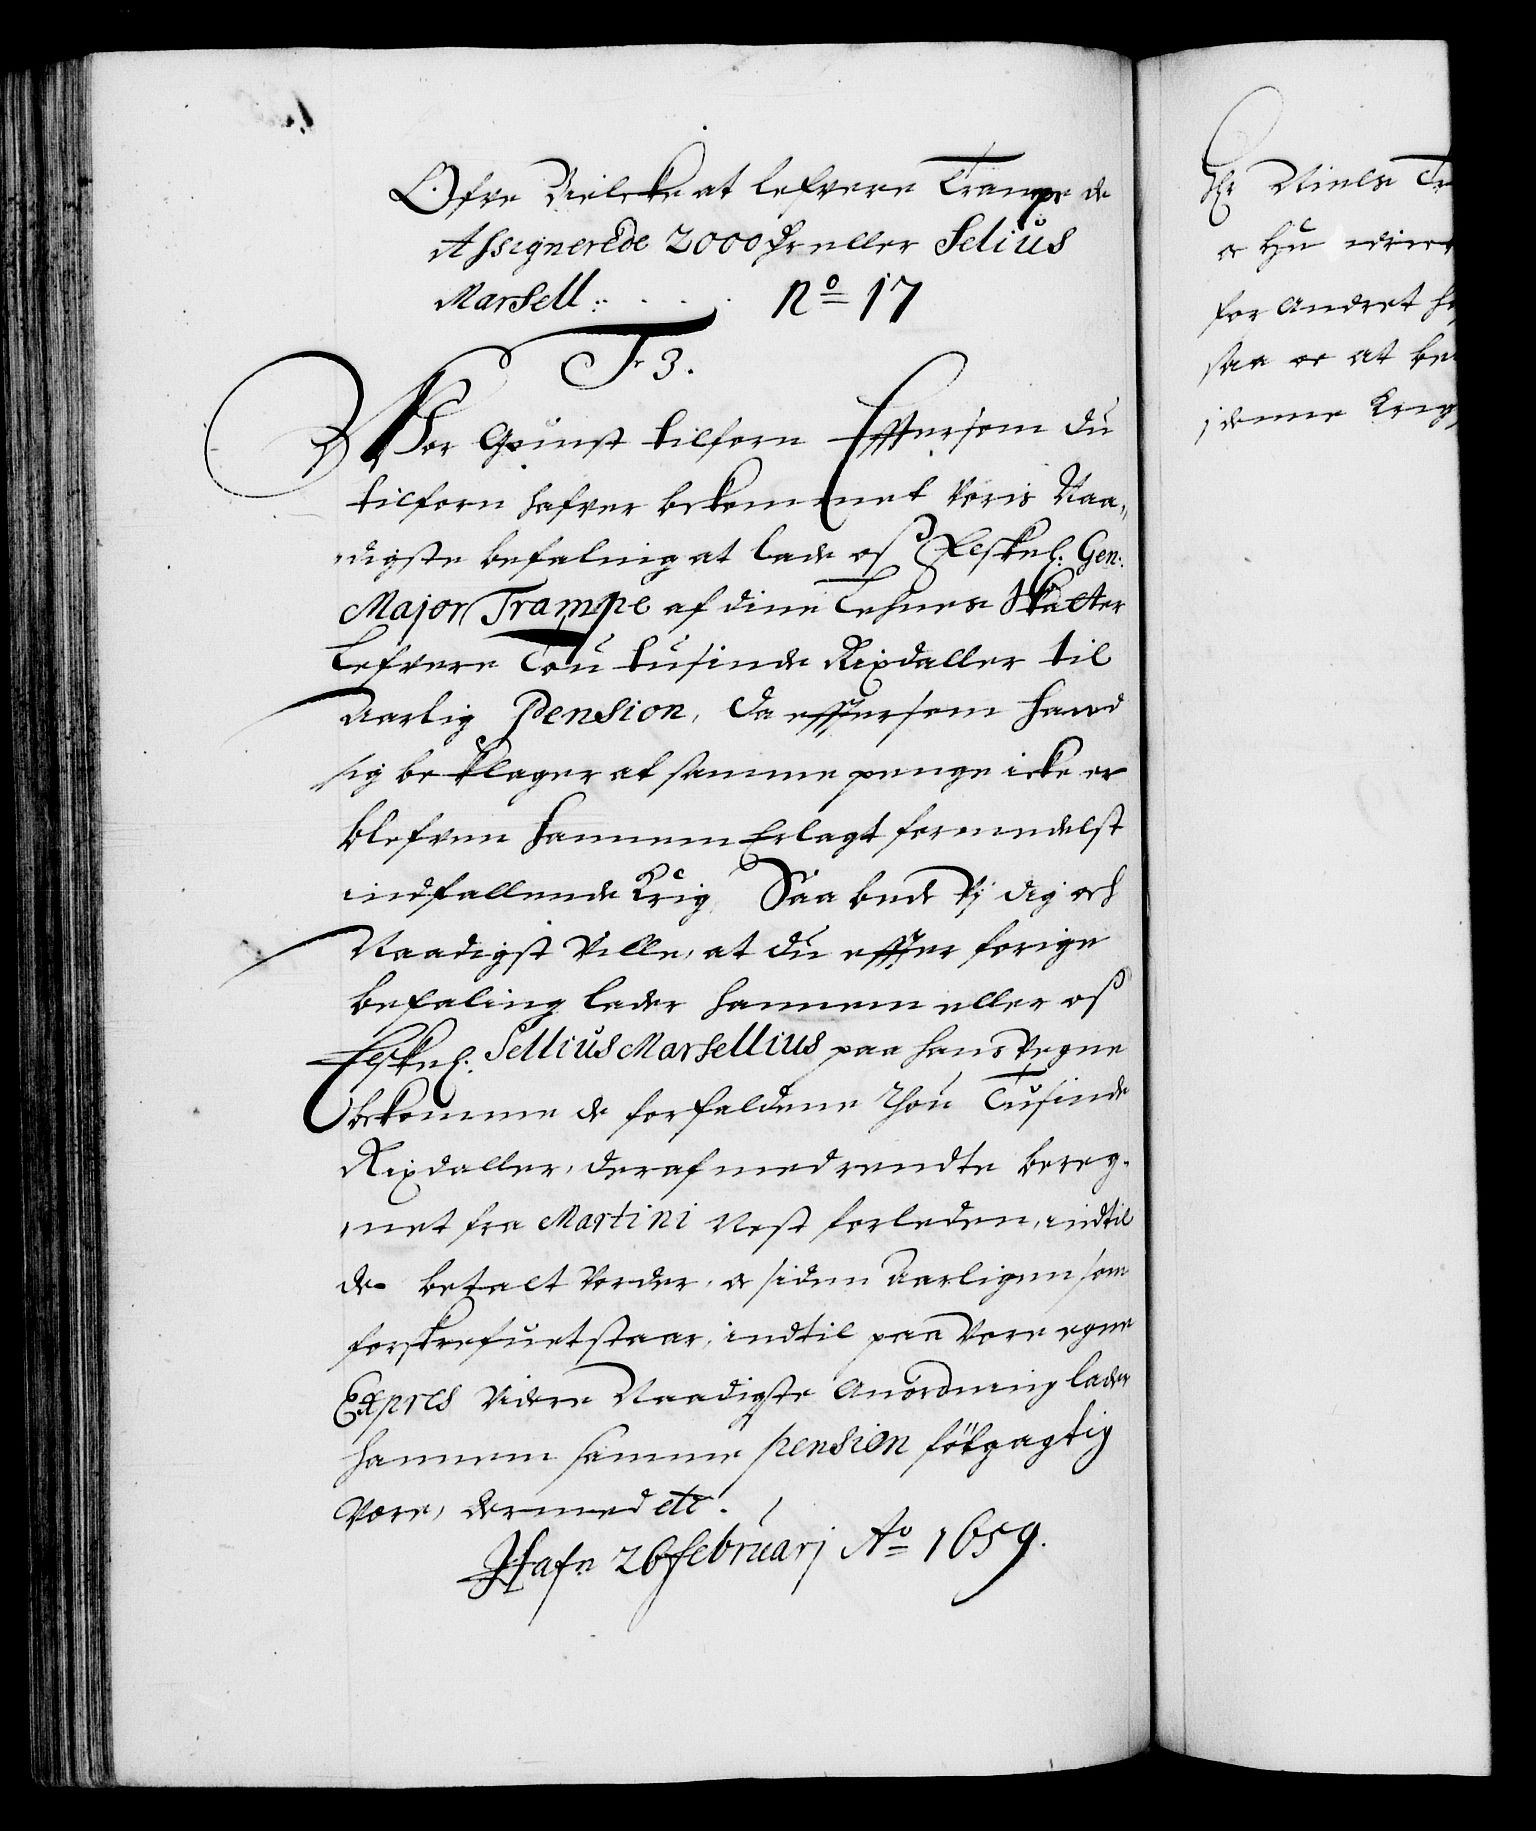 Ofve Bielcke at lefvere Trampe de
Assignerede 2000 dr eller Selius
Marsell: . . . . No 17
F 3.
Vor Gunst tilforn Effersom du
tilforn hafver bekommet Voris Naa,,
digste befaling at lade os Elskel: Gen:
Major Trampe af dine Lehnes Skatter
Lefvere Tou tusinde Rixdaller til
Aarlig Pension, da effersom hand
sig beklager at samme penge icke er
blefven hannem Erlagt formedelst
indfallende Krig, Saa bede Vj dig och
Naadigst Ville, at du effter forige
befaling lader hannem eller os
Elskel: Sellius Marsellius paa hans Vegne
bekomme de forfaldene Thou Tusinde
Rixdaller, deraf med rendte bereg-
net fra Martini Nest forleden, indtil
de betalt Vorder, oc siden Aarligen som
forskrefuet staar, indtil paa Vore egne
Expres Videre Naadigste Anordning lader
hannem samme pension følgagtig
Vere, dermed etc.
Hafn 26 februarj Ao 1659.
Hr Niels Tr
oc Hu
for Andret
saa oc at be
j denne Krig